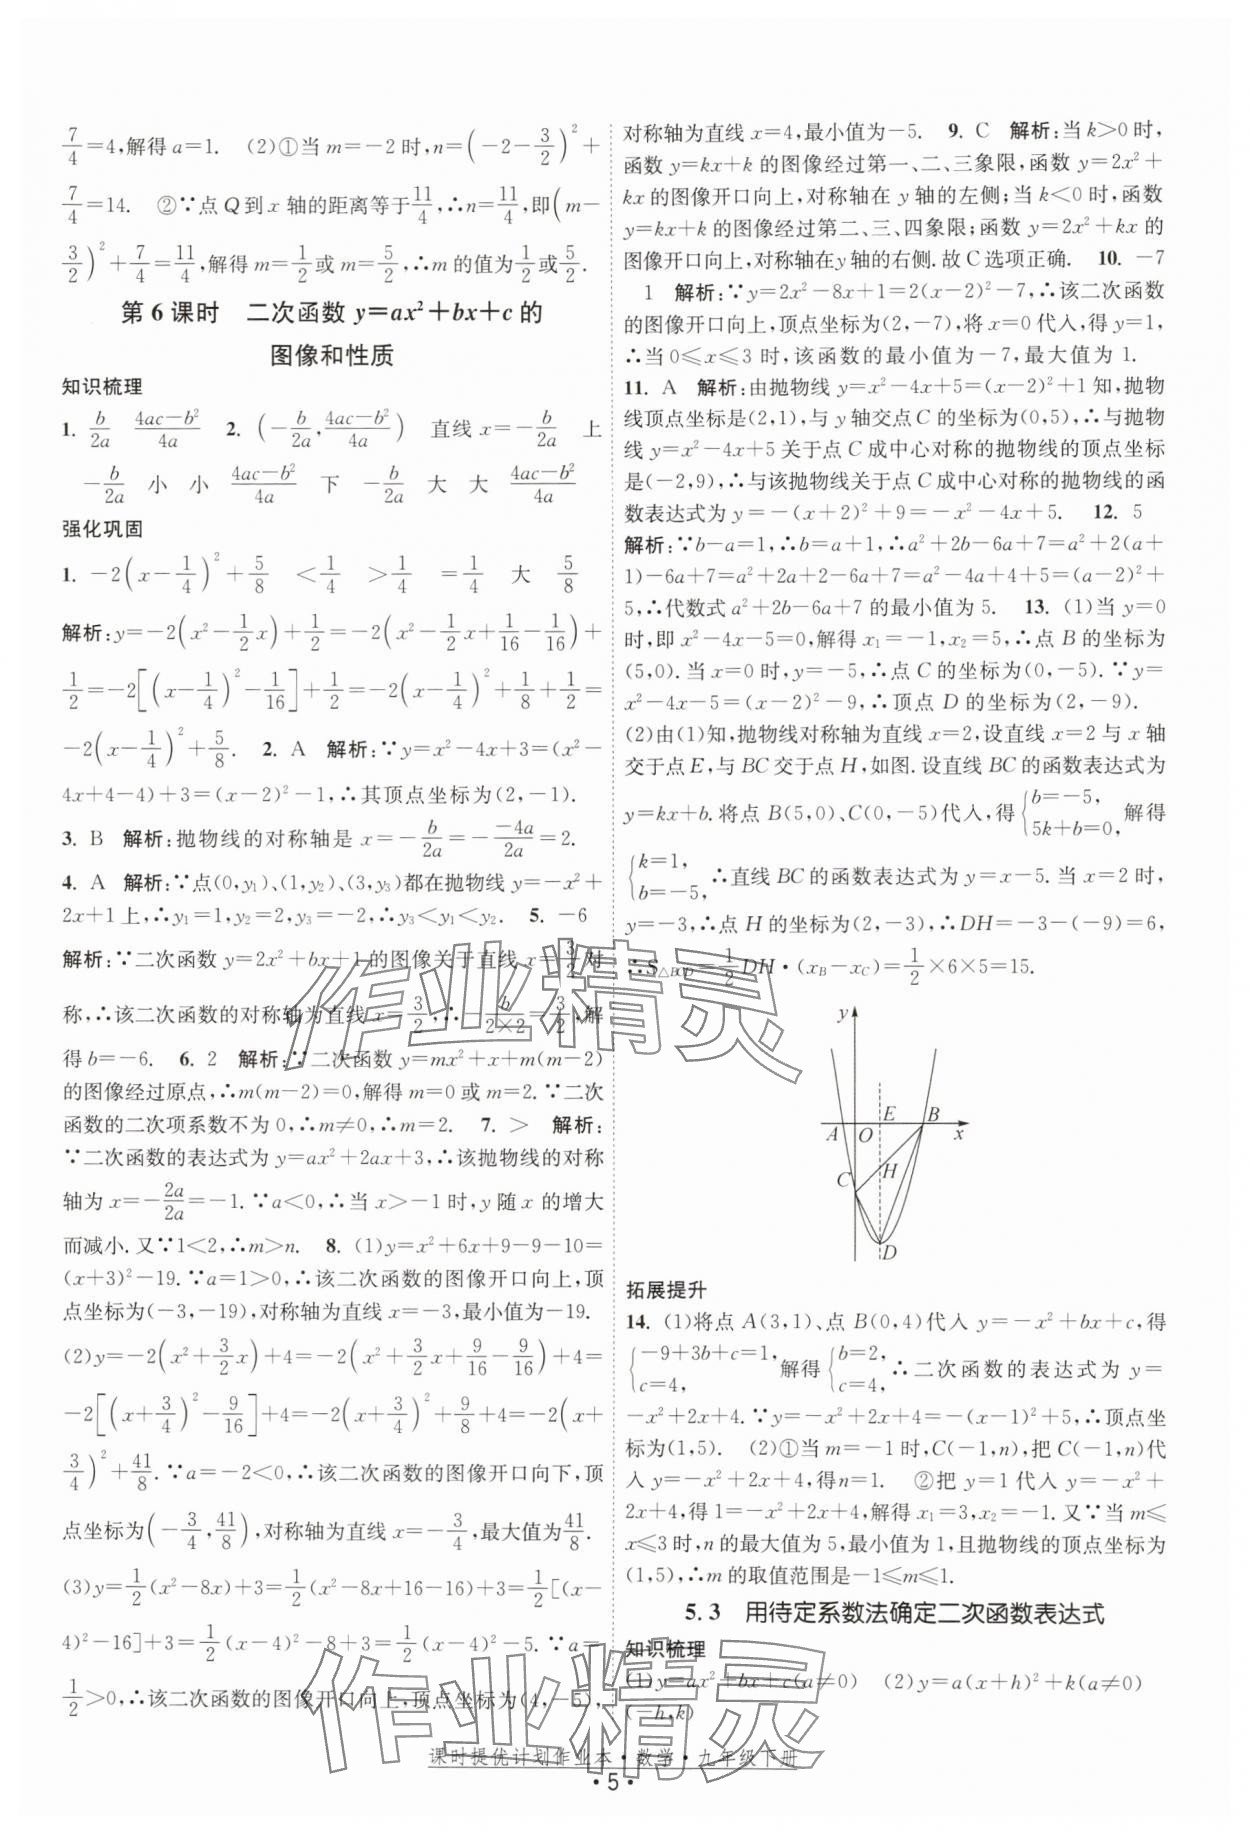 7/4=4,解得 a=1. (2)①当 m=-2 时,n=(-2-3/2)²+
7/4=14. ②∵点 Q 到 x 轴的距离等于11/4,∴n=11/4,即(m-
3/2)²+7/4=11/4,解得 m=1/2或 m=5/2,∴m 的值为1/2或5/2.
第 6 课时 二次函数 y=ax²+bx+c 的
图像和性质
知识梳理
1. b/2a (4ac-b²)/4a 2. (-b/2a,(4ac-b²)/4a) 直线 x=-b/2a 上
-b/2a 小 小 (4ac-b²)/4a 下 -b/2a 大 大 (4ac-b²)/4a
强化巩固
1. -2(x-1/4)²+5/8 <1/4 >1/4 =1/4 大 5/8
解析:y=-2(x²-1/2x)+1/2=-2(x²-1/2x+1/16-1/16)+
1/2=-2[(x-1/4)²-1/16]+1/2=-2(x-1/4)²+1/8+1/2=
-2(x-1/4)²+5/8. 2. A 解析:∵y=x²-4x+3=(x²-
4x+4-4)+3=(x-2)²-1,∴其顶点坐标为(2,-1).
3. B 解析:抛物线的对称轴是 x=-b/2a=-(-4a)/2a=2.
4. A 解析:∵点(0,y₁)、(1,y₂)、(3,y₃)都在抛物线 y=-x²+
2x+1 上,∴y₁=1,y₂=2,y₃=-2,∴y₃<y₁<y₂. 5. -6
解析:∵二次函数 y=2x²+bx+1 的图像关于直线 x=3/2 对
称,∴该二次函数的对称轴为直线 x=3/2,∴-b/(2×2)=3/2,解
得 b=-6. 6. 2 解析:∵二次函数 y=mx²+x+m(m-2)
的图像经过原点,∴m(m-2)=0,解得 m=0 或 m=2.∵二次
函数的二次项系数不为 0,∴m≠0,∴m=2. 7. > 解析:
∵二次函数的表达式为 y=ax²+2ax+3,∴该抛物线的对称
轴为 x=-2a/2a=-1.∵a<0,∴当 x>-1 时,y 随 x 的增大
而减小.又∵1<2,∴m>n. 8. (1)y=x²+6x+9-9-10=
(x+3)²-19.∵a=1>0,∴该二次函数的图像开口向上,顶
点坐标为(-3,-19),对称轴为直线 x=-3,最小值为-19.
(2)y=-2(x²+3/2x)+4=-2(x²+3/2x+9/16-9/16)+4=
-2[(x+3/4)²-9/16]+4=-2(x+3/4)²+9/8+4=-2(x+
3/4)²+41/8.∵a=-2<0,∴该二次函数的图像开口向下,顶
点坐标为(-3/4,41/8),对称轴为直线 x=-3/4,最大值为41/8.
(3)y=1/2(x²-8x)+3=1/2(x²-8x+16-16)+3=1/2[(x-
4)²-16]+3=1/2(x-4)²-8+3=1/2(x-4)²-5.∵a=
1/2>0,∴该二次函数的图像开口向上,顶点坐标为(4,-5),
对称轴为直线 x=4,最小值为-5. 9. C 解析:当 k>0 时,
函数 y=kx+k 的图像经过第一、二、三象限,函数 y=2x²+
kx 的图像开口向上,对称轴在 y 轴的左侧;当 k<0 时,函数
y=kx+k 的图像经过第二、三、四象限;函数 y=2x²+kx 的
图像开口向上,对称轴在y 轴的右侧.故 C 选项正确. 10. -7
1 解析:∵y=2x²-8x+1=2(x-2)²-7,∴该二次函数的
图像开口向上,顶点坐标为(2,-7),将 x=0 代入,得 y=1,
∴当 0≤x≤3 时,该函数的最小值为-7,最大值为 1.
11. A 解析:由抛物线 y=x²-4x+5=(x-2)²+1 知,抛物
线顶点坐标是(2,1),与 y 轴交点 C 的坐标为(0,5),∴与抛物
线 y=x²-4x+5 关于点 C 成中心对称的抛物线的顶点坐标
是(-2,9),∴与该抛物线关于点 C 成中心对称的抛物线的函
数表达式为 y=-(x+2)²+9=-x²-4x+5. 12. 5
解析:∵b-a=1,∴b=a+1,∴a²+2b-6a+7=a²+2(a+
1)-6a+7=a²+2a+2-6a+7=a²-4a+4+5=(a-2)²+
5,∴代数式 a²+2b-6a+7 的最小值为 5. 13. (1)当 y=0
时,即 x²-4x-5=0,解得 x₁=-1,x₂=5,∴点 B 的坐标为
(5,0).当 x=0 时,y=-5,∴点 C 的坐标为(0,-5).∵y=
x²-4x-5=(x-2)²-9,∴顶点 D 的坐标为(2,-9).
(2)由(1)知,抛物线对称轴为直线 x=2,设直线 x=2 与 x 轴
交于点 E,与 BC 交于点 H,如图.设直线 BC 的函数表达式为
y=kx+b.将点 B(5,0)、C(0,-5)代入,得{b=-5, 5k+b=0,解得
{k=1, b=-5,∴直线 BC 的函数表达式为 y=x-5.当 x=2 时,
y=-3,∴点 H 的坐标为(2,-3),∴DH=-3-(-9)=6,
∴S△BCD=1/2DH·(x_B-x_C)=1/2×6×5=15.
y
A O E B x
H
C
D
拓展提升
14. (1)将点 A(3,1)、点 B(0,4)代入 y=-x²+bx+c,得
{-9+3b+c=1, c=4,解得{b=2, c=4,∴二次函数的表达式为 y=
-x²+2x+4.∵y=-x²+2x+4=-(x-1)²+5,∴顶点坐
标为(1,5). (2)①当 m=-1 时,C(-1,n),把 C(-1,n)代
入 y=-x²+2x+4,得n=1. ②把 y=1 代入 y=-x²+
2x+4,得 1=-x²+2x+4,解得 x₁=3,x₂=-1.又∵当 m≤
x≤3 时,n 的最大值为 5,最小值为 1,且抛物线的顶点坐标为
(1,5),∴m 的取值范围是-1≤m≤1.
5.3 用待定系数法确定二次函数表达式
知识梳理
(1)y=ax²+bx+c(a≠0) (2)y=a(x+h)²+k(a≠0)
(-h,k)
作业精灵
作业精灵
课时提优计划作业本·数学·九年级下册
·5·